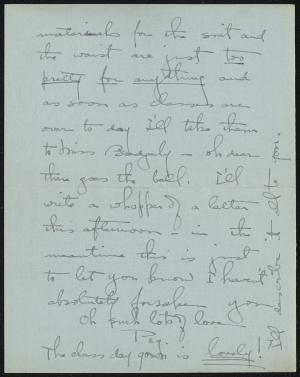 materials for the suit and
the waist are just too
pretty for anything and
as soon as classes are
over to day I'll take them
to Miss Badgely - oh dear
there goes the bell. I'll
write a whopper of a letter
this afternoon - in the
meantime this is just
to let you know I haven't
absolutely forsaken you
Oh such lots of love
Peg.
The class day gown is lovely!
I'll describe it all to you.